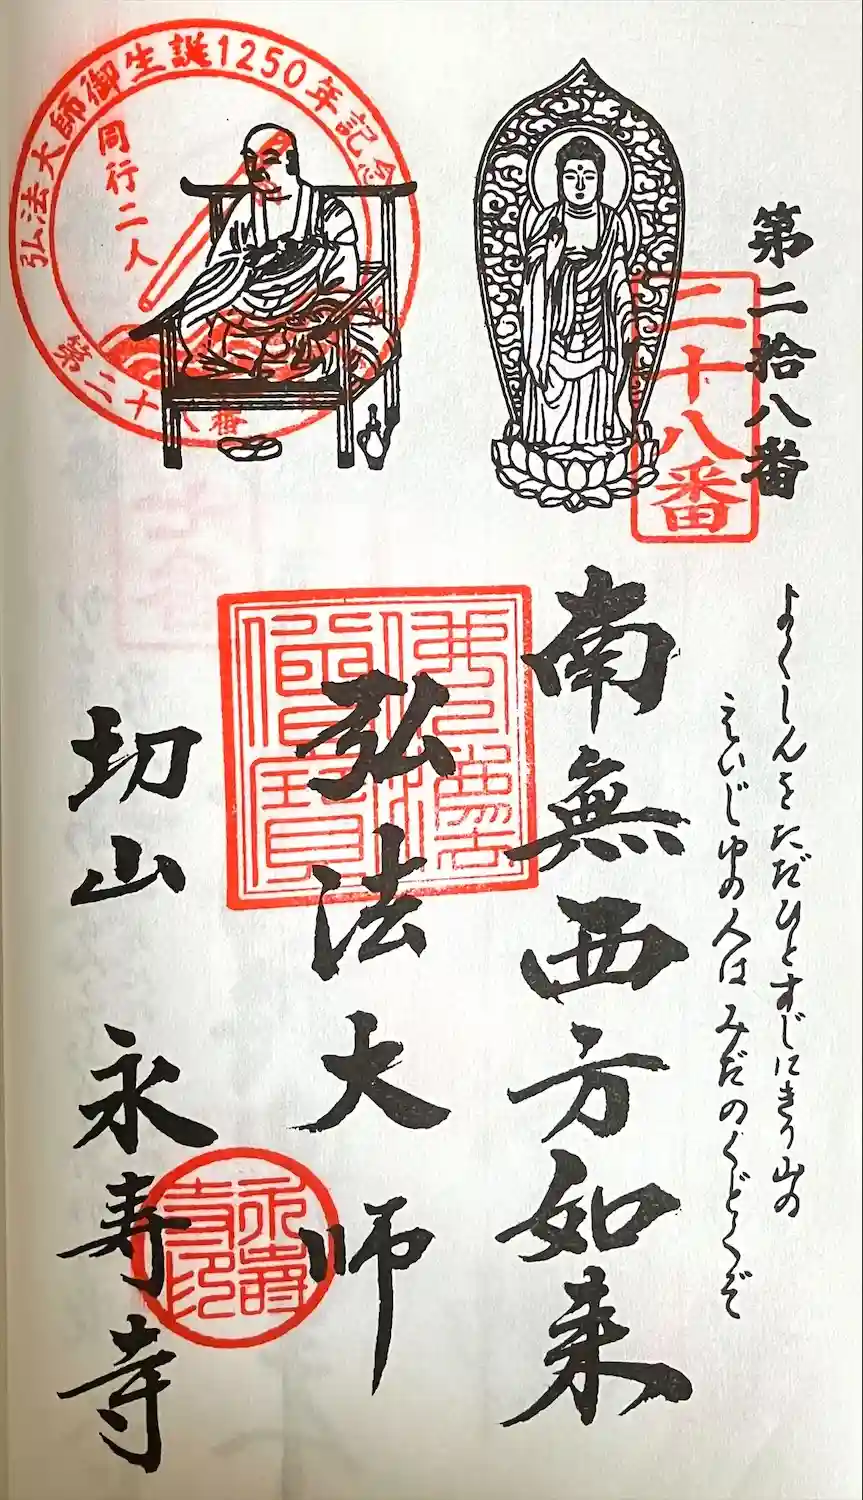 第二拾八番
二十八番
よくしんをただひとすじにきり山の
えいじゆの人はみだのくどくぞ
南無西方如来
弘法大師
佛灋僧寶
切山 永寿寺
永壽寺印
弘法大師御生誕1250年記念
同行二人
第二十八番